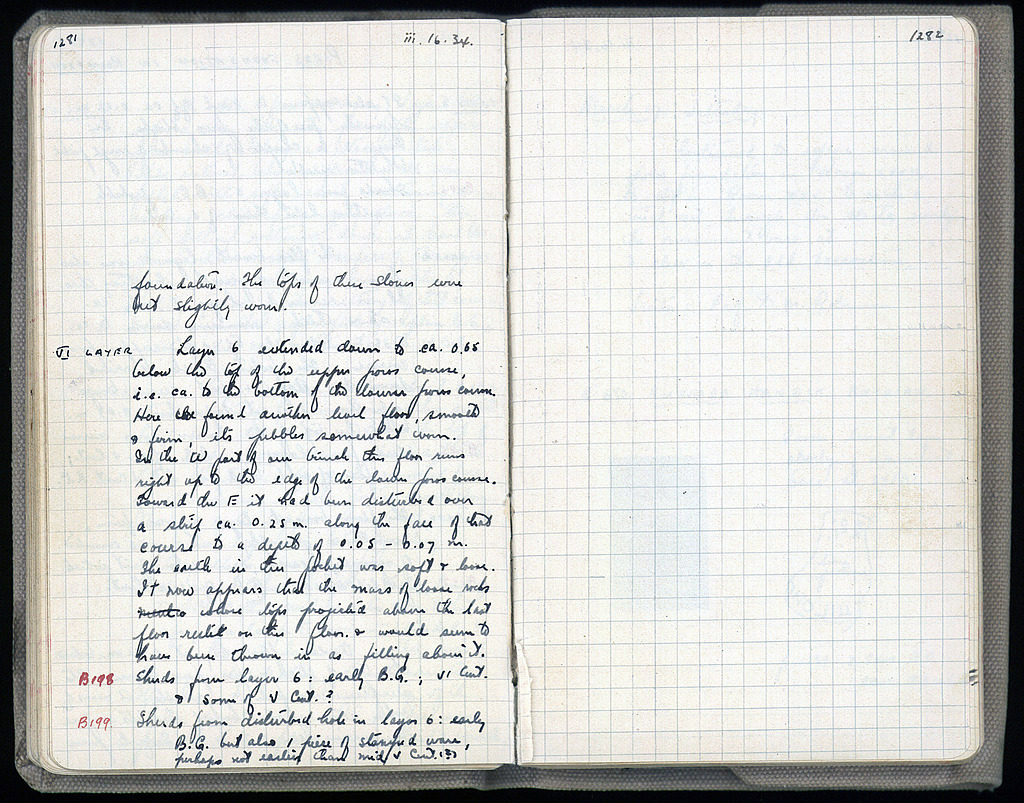 1281
iii. 16. 34.
1282
foundation. The tops of these stones were
but slightly worn.
VI LAYER
Layer 6 extended down to ca. 0.65
below the top of the upper poros course,
i.e. ca. to the bottom of the lower poros course.
Here we found another level floor, smooth
& firm, its pebbles somewhat worn.
In the W part of our trench this floor runs
right up to the edge of the lower poros course.
Toward the E it had been disturbed over
a strip ca. 0.25 m. along the face of that
course to a depth of 0.05 - 0.07 m.
The earth in this pocket was soft & loose.
It now appears that the mass of loose rocks
whose tops projected above the last
floor rested on this floor & would seem to
have been thrown in as filling above it.
B198
Sherds from layer 6: early B.G.; VI Cent.
& some of V Cent.?
B199.
Sherds from disturbed hole in layer 6: early
B.G. but also 1 piece of stamped ware,
perhaps not earlier than mid V Cent. (?)